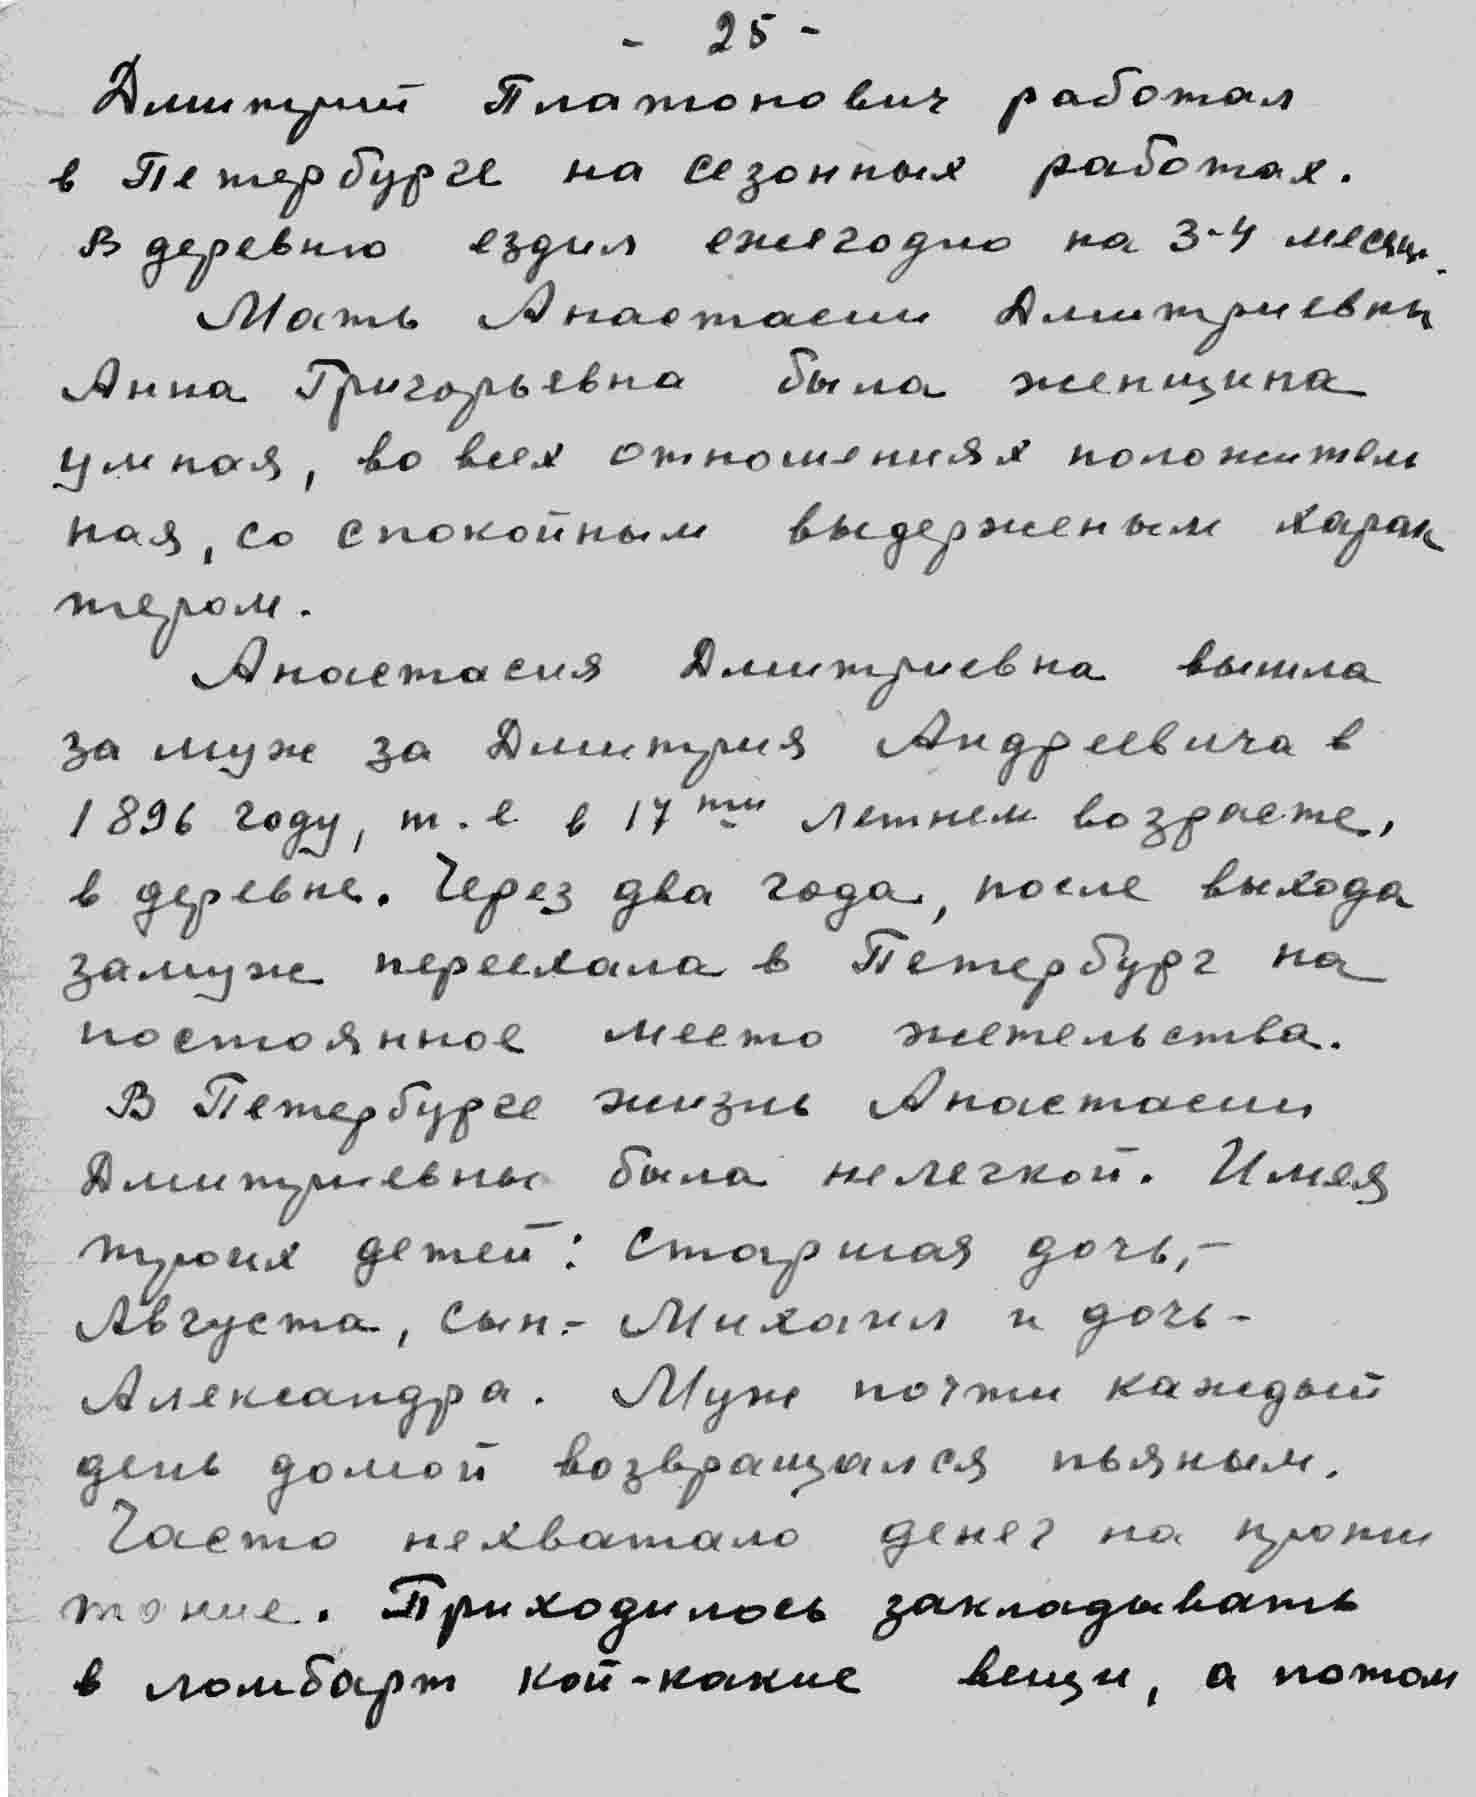 - 25 -
Дмитрий Платонович работал
в Петербурге на сезонных работах.
В деревню ездил ежегодно на 3-4 месяц.
Мать Анастасии Дмитриевны
Анна Григорьевна была женщина
умная, во всех отношениях положитель
ная, со спокойным выдерженым харак
тером.
Анастасия Дмитриевна вышла
за муж за Дмитрия Андреевича в
1896 году, т.е в 17ти летнем возрасте,
в деревне. Через два года, после выхода
замуж переехала в Петербург на
постоянное место жетельства.
В Петербурге жизнь Анастасии
Дмитриевны была нелегкой. Имея
троих детей: старшая дочь,-
Августа, сын.- Михаил и дочь-
Александра. Муж почти каждый
день домой возвращался пьяным.
Часто нехватало денег на пропи
тание. Приходилось закладывать
в ломбарт кой-какие вещи, а потом